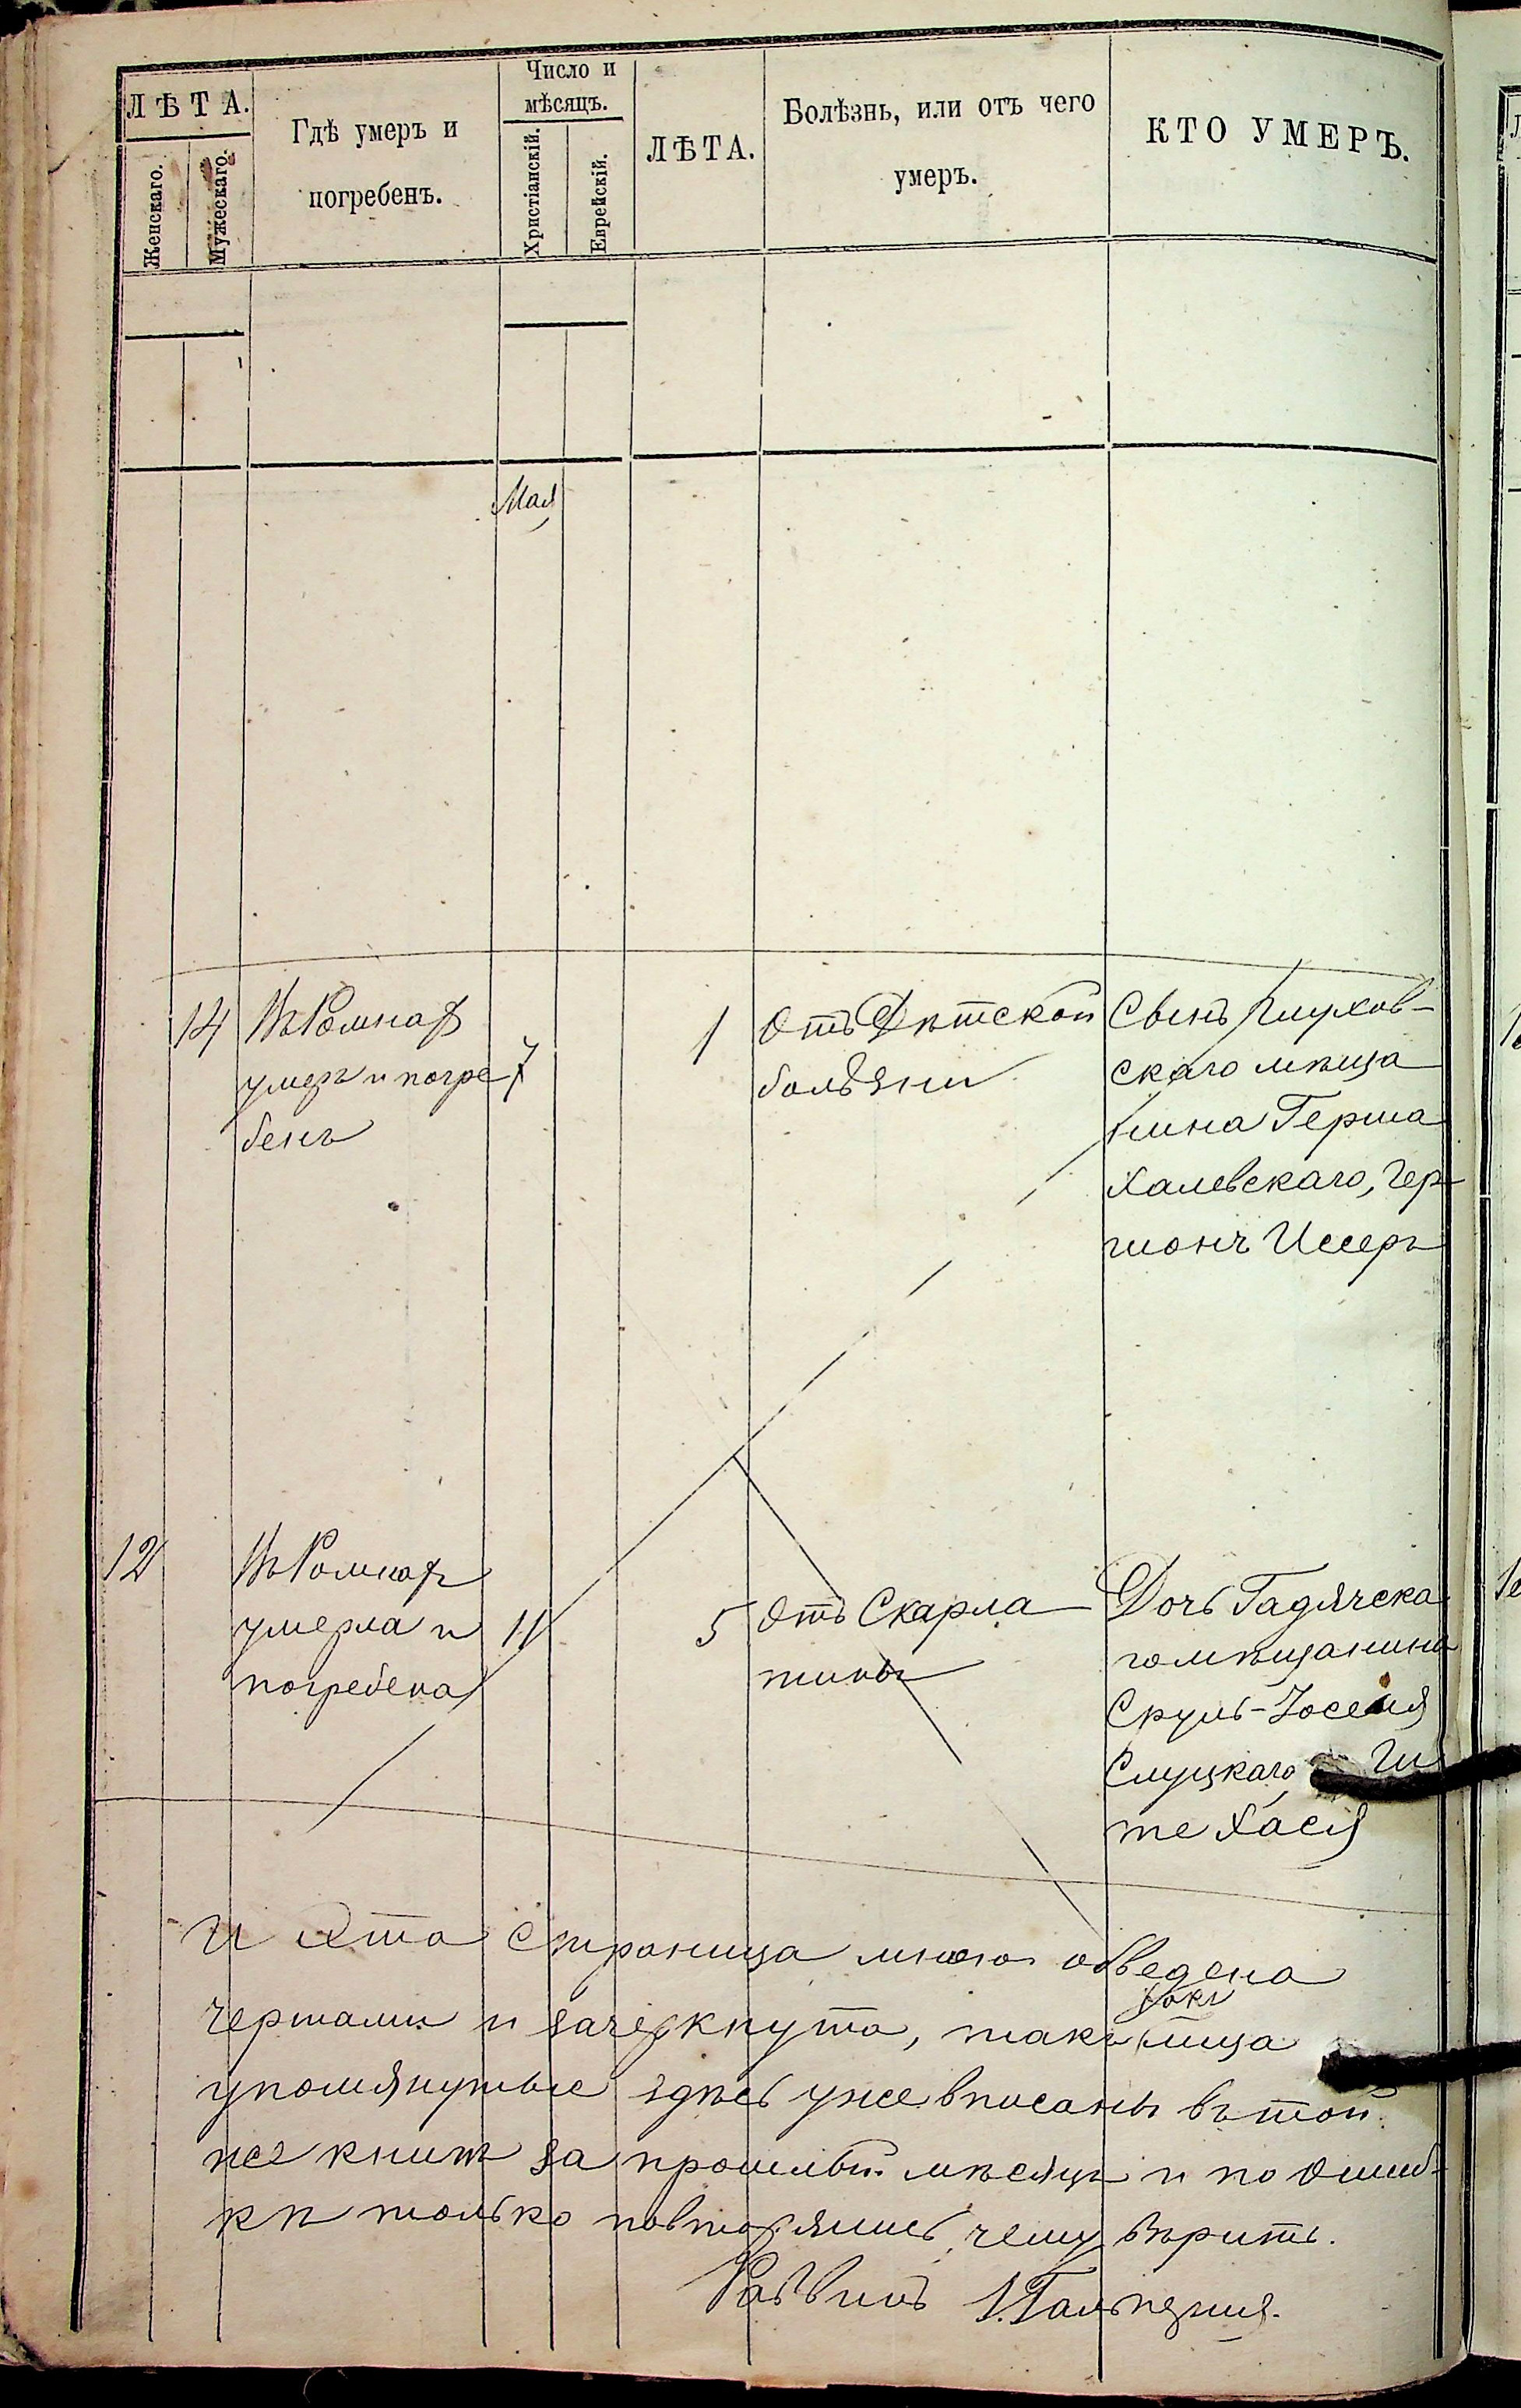 ЛѢТА.
Женскаго.
Мужескаго.
Гдѣ умеръ и
погребенъ.
Число и
мѣсяцъ.
Христіанскій.
Еврейскій.
ЛѢТА.
Болѣзнь, или отъ чего
умеръ.
КТО УМЕРЪ.
Мая
14
Въ Ромнах
умеръ и погре
бенъ
7
1
Отъ Дѣтской
болѣзни
Сынъ Глухов-
скаго мѣща
нина Герша
Халевскаго, Гер
шонъ Иссеръ
12
Въ Ромнахъ
умерла и
погребена
11
5
Отъ Скарла
тины
Дочь Гадячска
го мѣщанина
Сруль-Іоселя
Слуцкаго Ги
те Хася
И Эта страница мною обведена
чертами и зачеркнута, такъ какъ лица
упомянутые здѣсь уже вписаны въ той
же книгѣ за прошлый мѣсяцъ и по ошиб-
кѣ только повторялись, чему вѣрить.
Раввинъ І. Гальпернъ